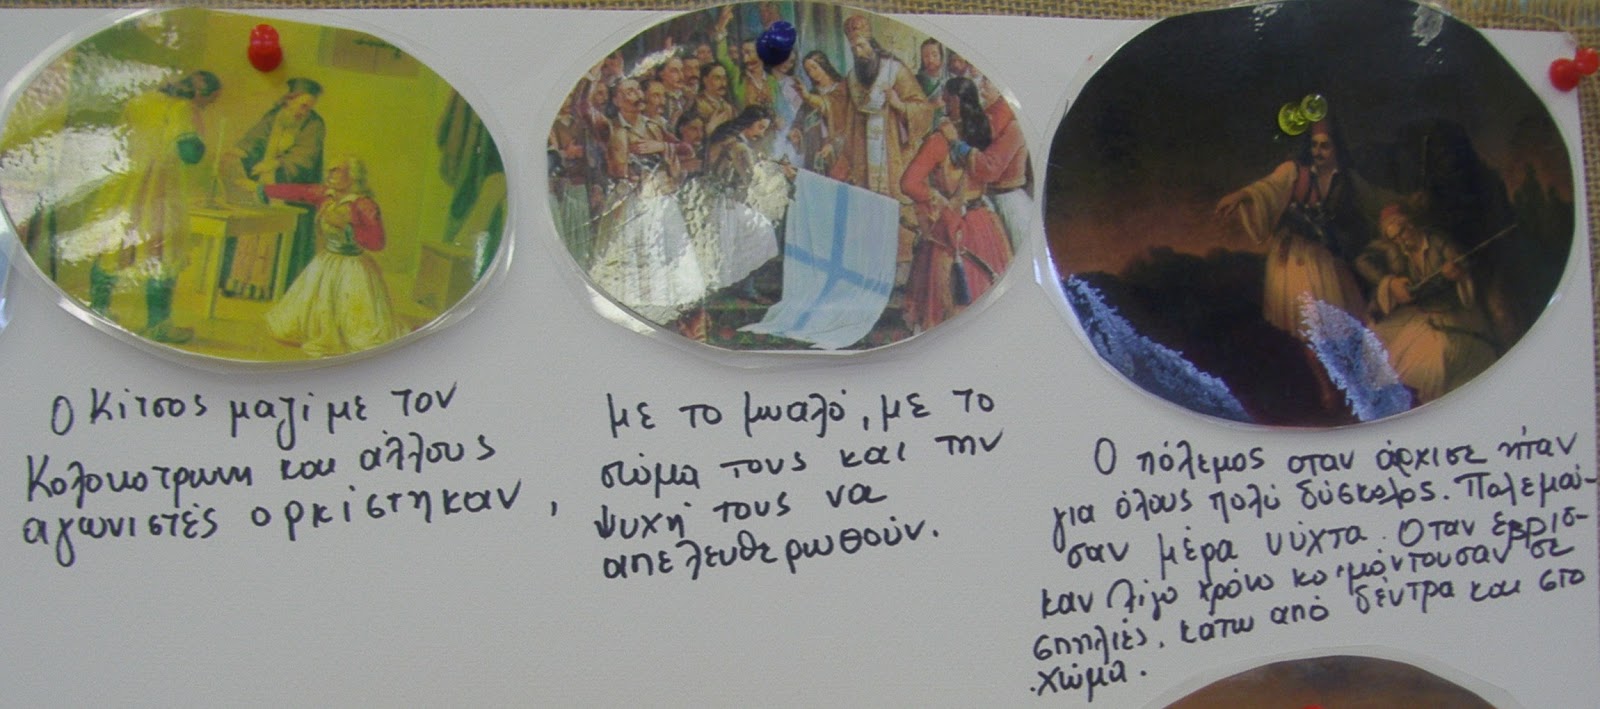 Ο Κίτσος μαζί με τον
Κολοκοτρωνη και άλλους
αγωνιστές ορκίστηκαν,
με το μυαλό, με το
στόμα τους και την
ψυχή τους να
απελευθερωθούν.
Ο πόλεμος οταν άρχισε ήταν
για όλους πολύ δύσκολος. Πολεμού-
σαν μέρα νύχτα. Οταν έβρισ-
καν λίγο χρόνο κοιμόντουσαν σε
σπηλιές, κατω από δέντρα και στο
χώμα.